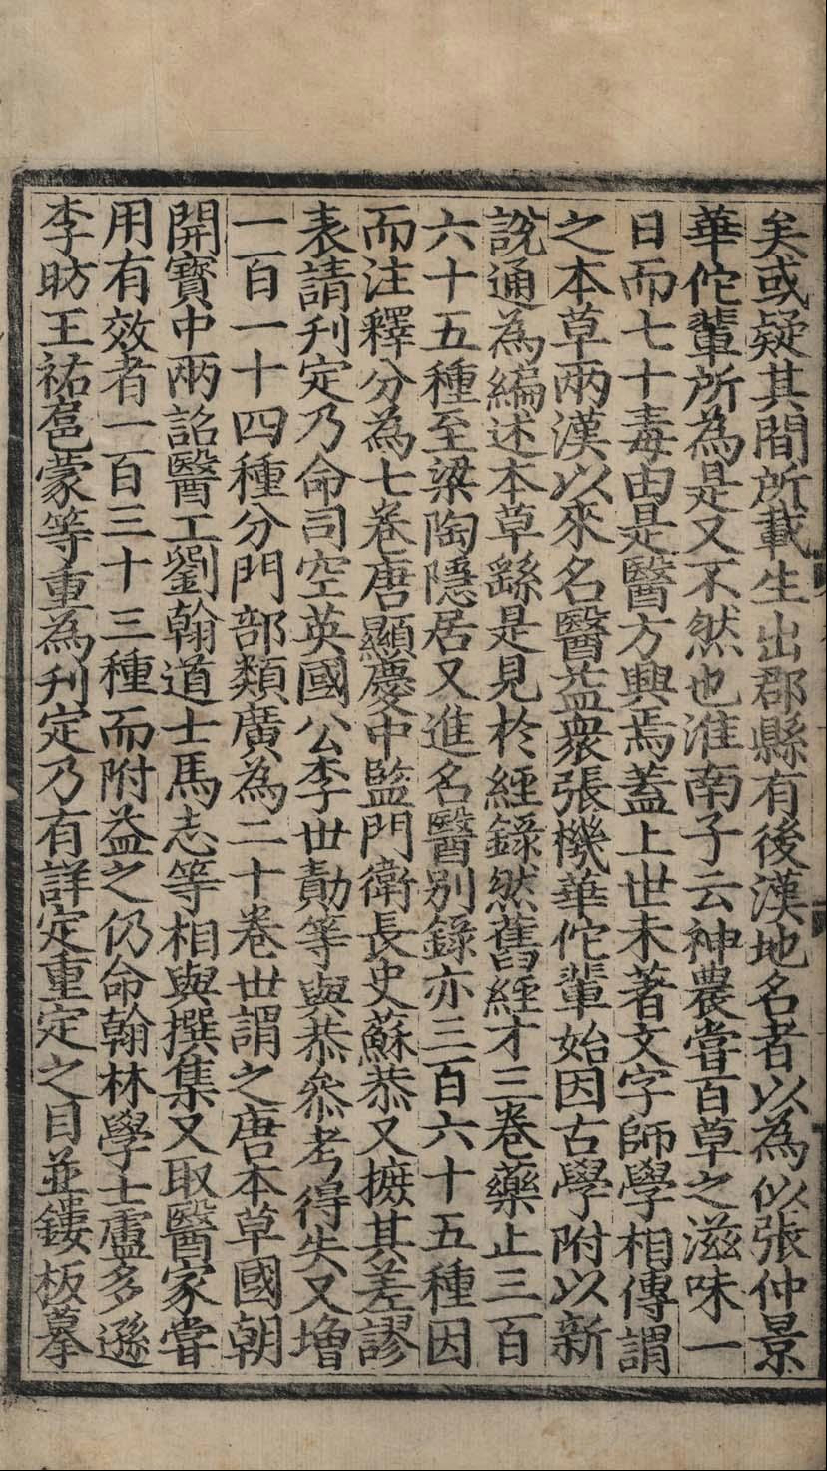 矣或疑其間所載生出郡縣有後漢地名者以為似張仲景
華佗輩所為是又不然也淮南子云神農嘗百草之滋味一
日而七十毒由是醫方興焉蓋上世未著文字師學相傳謂
之本草兩漢以來名醫益衆張機華佗輩始因古學附以新
說通為編述本草繇是見於經錄然舊經才三卷藥止三百
六十五種至梁陶隱居又進名醫別錄亦三百六十五種因
而注釋分為七卷唐顯慶中監門衛長史蘇恭又摭其差謬
表請刋定乃命司空英國公李世勣等與恭叅考得失又增
一百一十四種分門部類廣為二十卷世謂之唐本草國朝
開寶中兩詔醫工劉翰道士馬志等相與撰集又取醫家嘗
用有效者一百三十三種而附益之仍命翰林學士盧多遜
李昉王祐扈蒙等重為刋定乃有詳定重定之目並鏤板摹